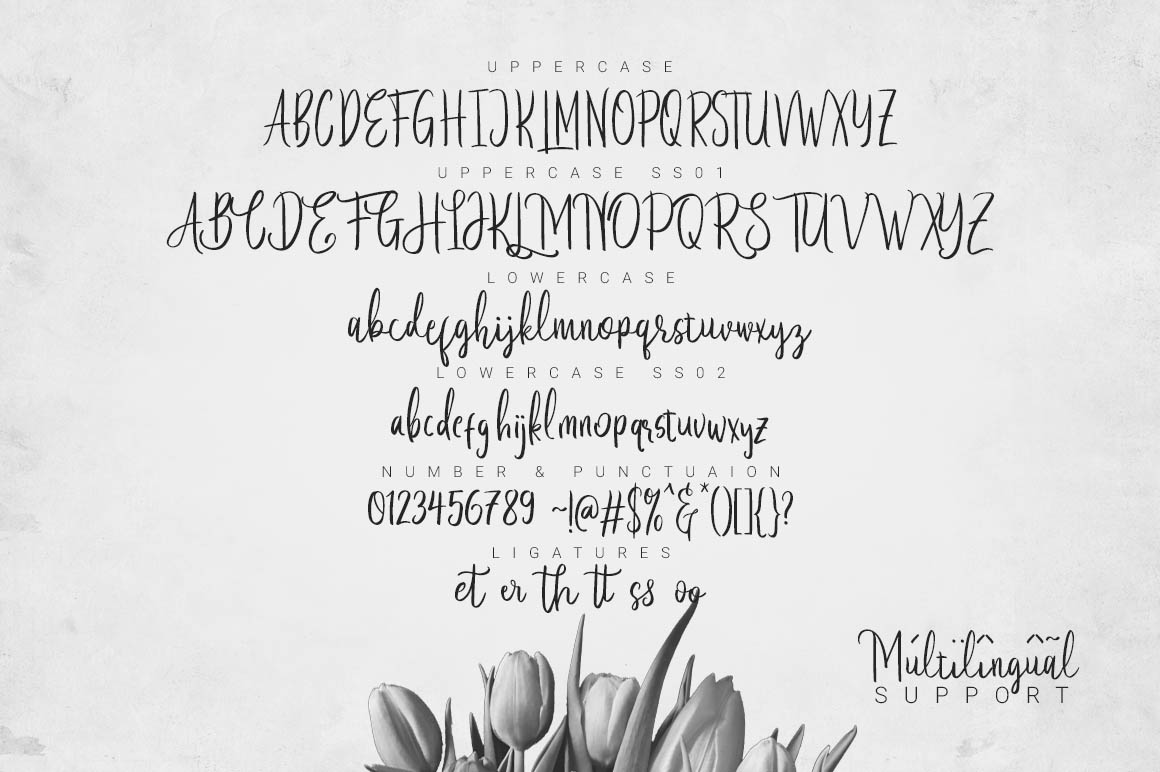 UPPERCASE
ABCDEFGHIJKLMNOPQRSTUVWXYZ
UPPERCASE SS01
ABCDEFGHIJKLMNOPQRSTUVWXYZ
LOWERCASE
abcdefghijklmnopqrstuvwxyz
LOWERCASE SS02
abcdefghijklmnopqrstuvwxyz
NUMBER & PUNCTUAION
0123456789 ~!@#$%^&*()[]{}?
LIGATURES
et er th tt ss oo
Múltïlîngûãl
SUPPORT